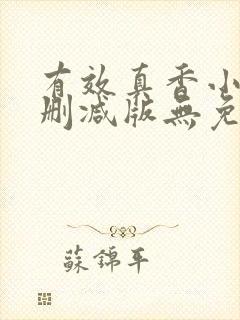 有效真香小
删减版無免
蘇錦年